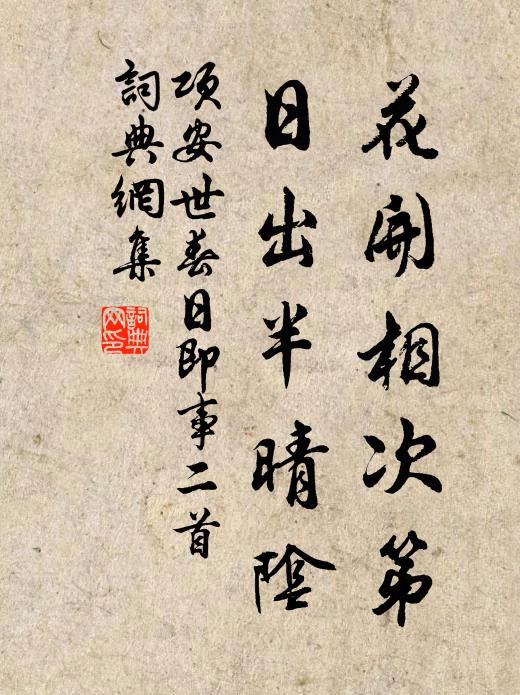 花開相次第
日出半晴陰
項安世春日即事二首
詞典網集
詞典網印